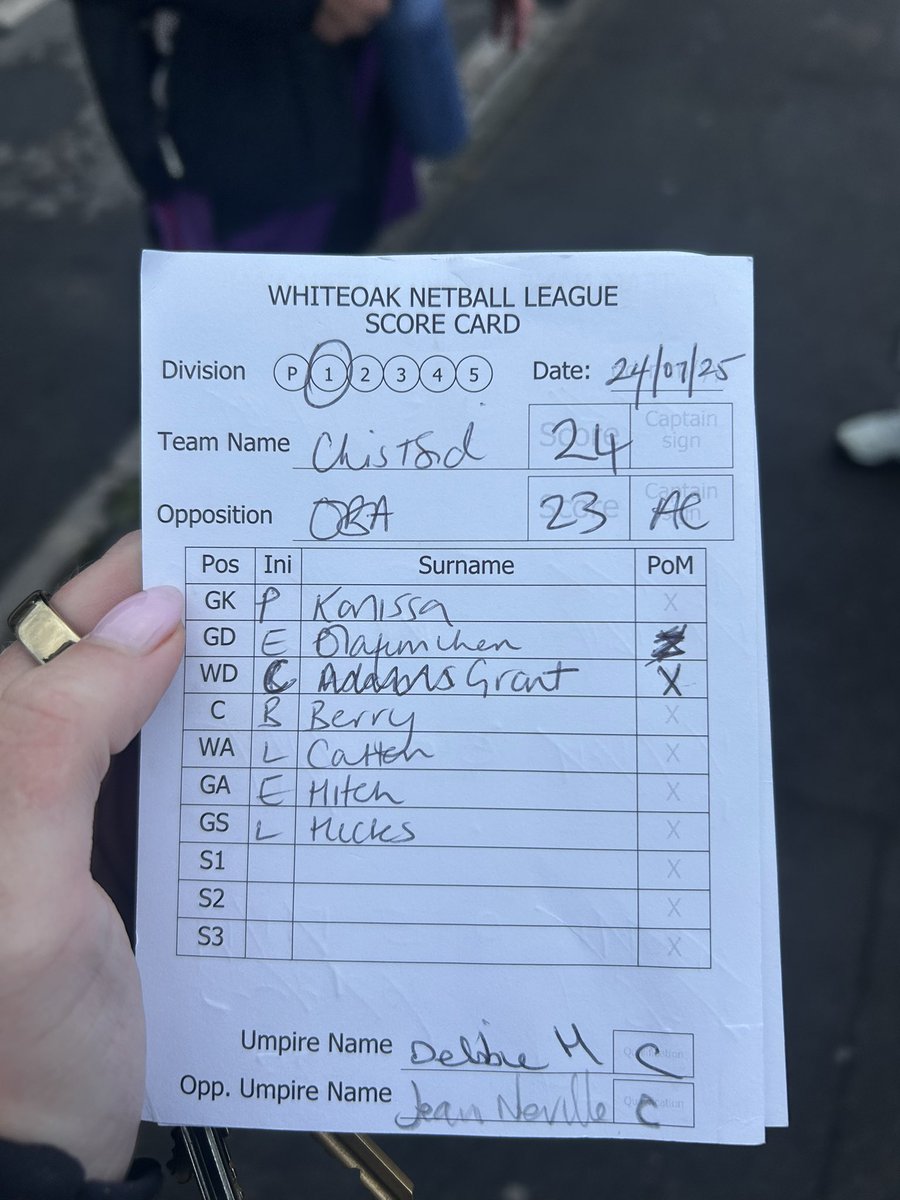 WHITEOAK NETBALL LEAGUE
SCORE CARD
Division P 1 2 3 4 5 Date: 24/07/25
Team Name Chis & Sid Score 24 Captain sign
Opposition OBA Score 23 Captain sign AC
Pos Ini Surname PoM
GK P Kanissa X
GD E
WD C Adams Grant X
C B Berry X
WA L Catten X
GA E Hitch X
GS L Hicks X
S1 X
S2 X
S3 X
Umpire Name Debbie M Qualification C
Opp. Umpire Name Jean Neville Qualification C